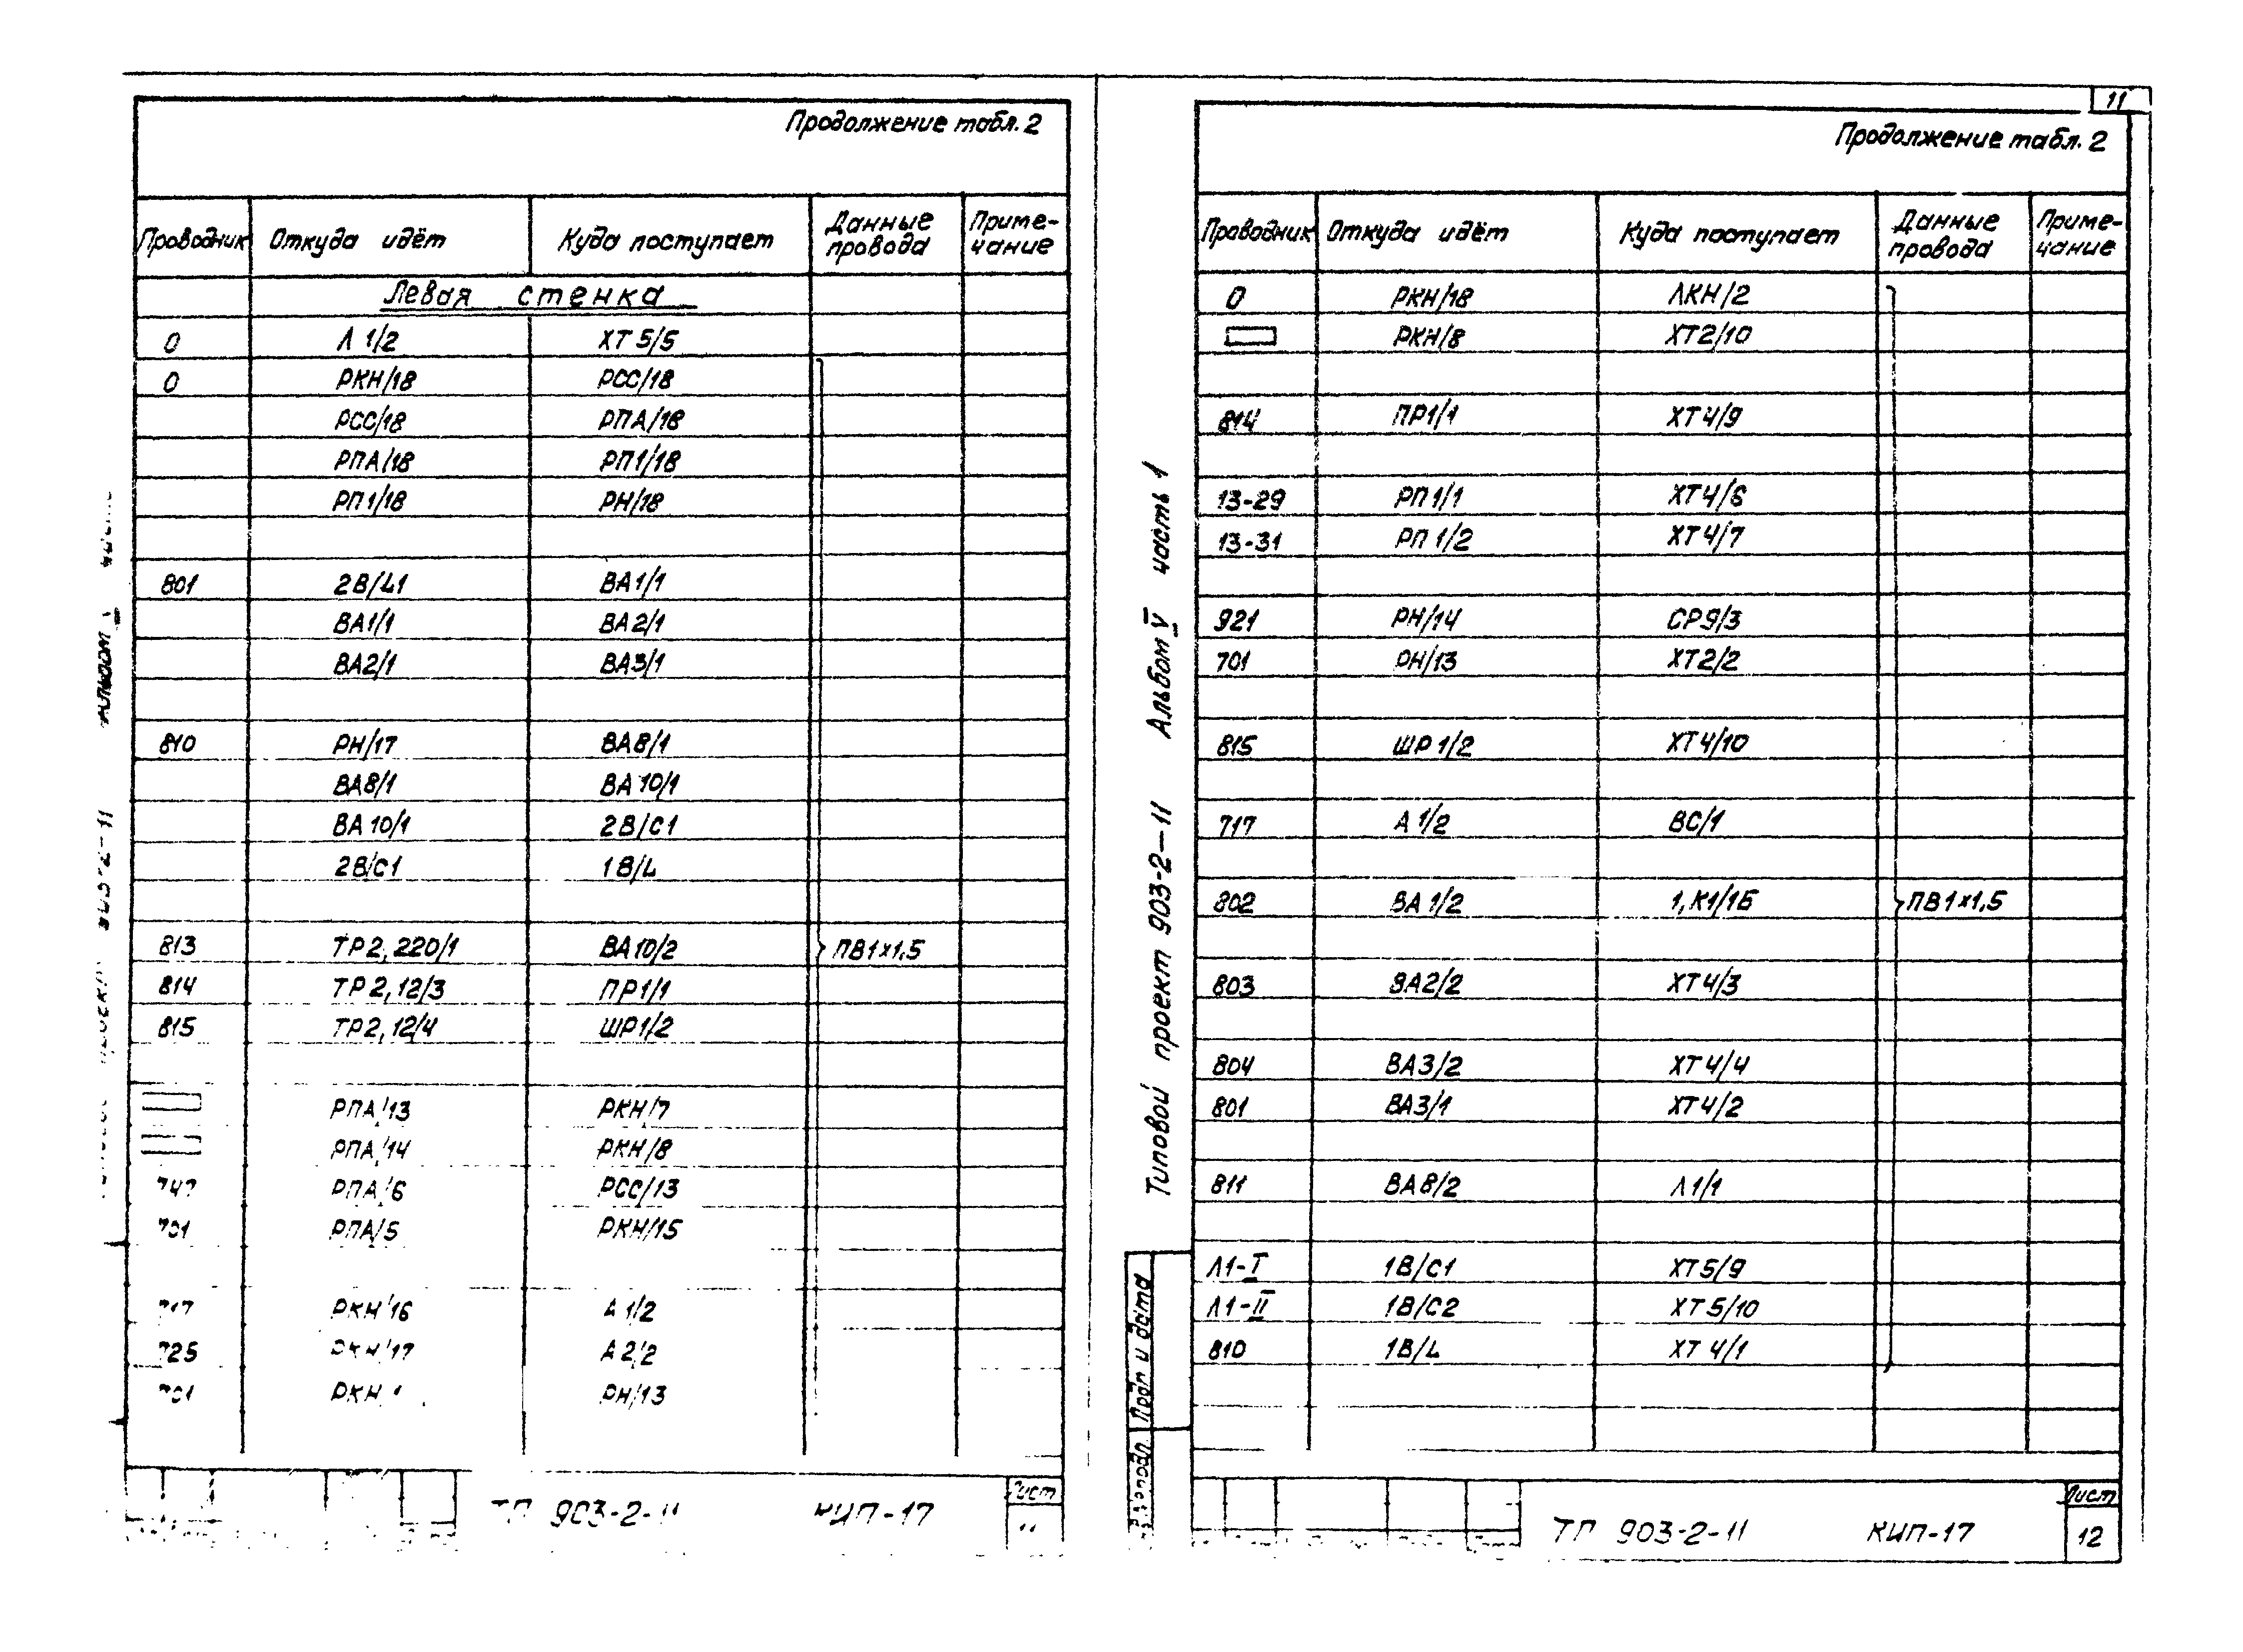 Продолжение табл. 2
Проводник Откуда идёт Куда поступает Данные провода Приме-чание
Левая стенка
0 Л1/2 ХТ5/5
0 РКН/18 РСС/18
РСС/18 РПА/18
РПА/18 РП1/18
РП1/18 РН/18
801 2В/L1 ВА1/1
ВА1/1 ВА2/1
ВА2/1 ВА3/1
810 РН/17 ВА8/1
ВА8/1 ВА10/1
ВА10/1 2В/С1
2В/С1 1В/L
813 ТР2, 220/1 ВА10/2 ПВ1×1,5
814 ТР2, 12/3 ПР1/1
815 ТР2, 12/4 ШР1/2
РПА/13 РКН/7
РПА/14 РКН/8
747 РПА/6 РСС/13
701 РПА/5 РКН/15
717 РКН/16 А1/2
725 РКН/17 А2/2
701 РКН РН/13
ТП 903-2-11 КИП-17
Лист
11
11
Продолжение табл. 2
Проводник Откуда идёт Куда поступает Данные провода Приме-чание
0 РКН/18 ЛКН/2
РКН/8 ХТ2/10
814 ПР1/1 ХТ4/9
13-29 РП1/1 ХТ4/6
13-31 РП1/2 ХТ4/7
921 РН/14 СР9/3
701 РН/13 ХТ2/2
815 ШР1/2 ХТ4/10
717 А1/2 ВС/1
802 ВА1/2 1,К1/1Б ПВ1×1,5
803 ВА2/2 ХТ4/3
804 ВА3/2 ХТ4/4
801 ВА3/1 ХТ4/2
811 ВА8/2 Л1/1
Л1-I 1В/С1 ХТ5/9
Л1-II 1В/С2 ХТ5/10
810 1В/L ХТ4/1
Типовой проект 903-2-11 Альбом V часть 1
Подп и дата
ТП 903-2-11 КИП-17
Лист
12